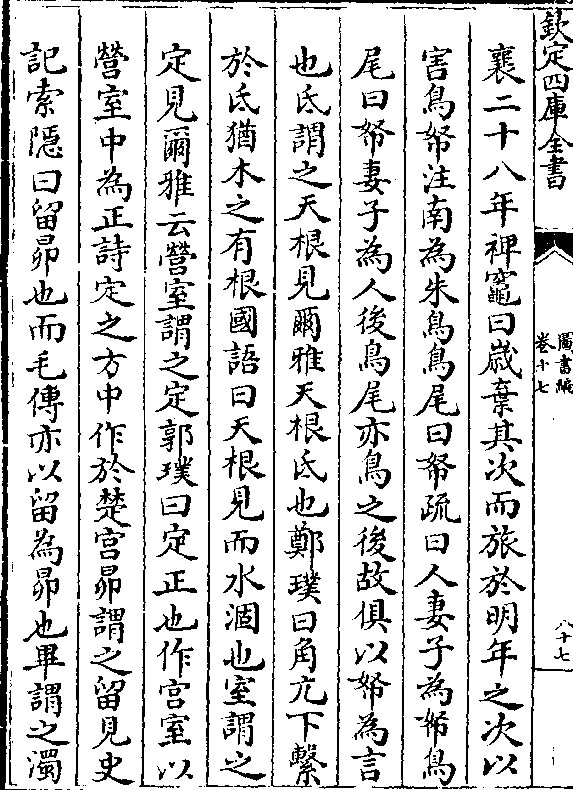 欽定四庫全書
圖書編
卷十七
八十七
襄二十八年裨竈曰歲棄其次而旅於明年之次以
害鳥帑注南為朱鳥鳥尾曰帑疏曰人妻子為帑鳥
尾曰帑妻子為人後鳥尾亦鳥之後故俱以帑為言
也氐謂之天根見爾雅天根氐也鄭璞曰角亢下繫
於氐猶木之有根國語曰天根見而水涸也室謂之
定見爾雅云營室謂之定郭璞曰定正也作宮室以
營室中為正詩定之方中作於楚宮昴謂之留見史
記索隱曰留昴也而毛傳亦以留為昴也畢謂之濁